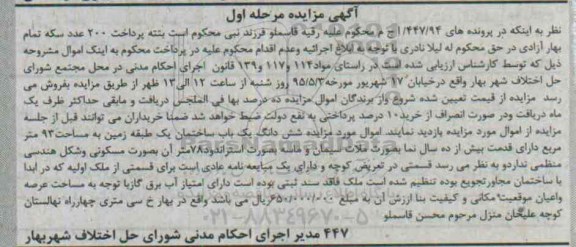 آگهی مزایده مرحله اول
نظر به اینکه در پرونده های ۴۴۷/۹۴/اج م محکوم علیه رقیه قاسملو فرزند نبی محکوم است بتنه پرداخت ۲۰۰ عدد سکه تمام
بهار آزادی در حق محکوم له لیلا نادری با توجه به ابلاغ اجرائیه وعدم اقدام محکوم علیه در پرداخت محکوم به اینک اموال مشروحه
ذیل که توسط کارشناس ارزیابی شده است در راستای مواد ۱۱۴ و ۱۱۷ و ۱۳۹ قانون اجرای احکام مدنی در محل مجتمع شورای
حل اختلاف شهر بهار واقع درخیابان ۱۷ شهریور مورخه ۹۵/۵/۳ روز شنبه از ساعت ۱۲ الی ۱۳ ظهر از طریق مزایده بفروش می
رسد مزایده از قیمت تعیین شده شروع واز برندگان اموال مزایده ده درصد بها فی المجلس دریافت و مابقی حداکثر ظرف یک
ماه دریافت ودر صورت انصراف از خرید ۱۰ درصد پرداختی به نفع دولت ضبط خواهد شد ضمنا خریداران می توانند قبل از جلسه
مزایده از اموال مورد مزایده بازدید نمایند. اموال مورد مزایده شش دانگ یک باب ساختمان یک طبقه زمین به مساحت ۹۳ متر
مربع دارای قدمت بیش از ده سال نما بصورت ملات سیمان و نقشه بصورت استراندارد ۷۸متر آن بصورت مسکونی وشکل هندسی
منظمی نداردو به نظر می رسد قسمتی در تعریض کوچه و دارای یک مبایعه نامه عادی است برای قسمتی از ملک اولیه که در ابدا
با ساختمان مجاورتجویع بوده تنظیم شده است ملک فاقد سند ثبتی بوده است دارای امتیاز آب برق گازبا توجه به مساحت عرصه
واعیان موقعیت مکانی و کیفیت بنا ارزش آن به مبلغ ۶۵۰/۰۰۰/۰۰۰ریال می باشد واقع در بهار خ سی متری چهارراه نهالستان
کوچه علیخان منزل مرحوم محسن قاسملو
۴۴۷ مدیر اجرای احکام مدنی شورای حل اختلاف شهربهار
۰۲۱-۸۸۳۴۹۶۷۰-۵